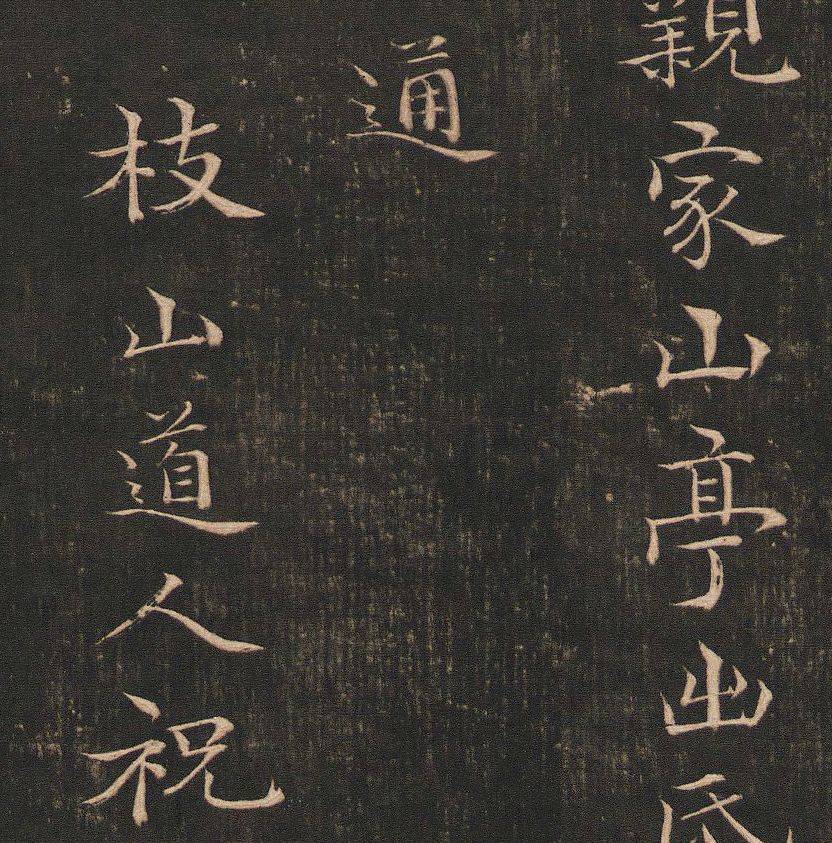 親家山亭出
通
枝山道人祝